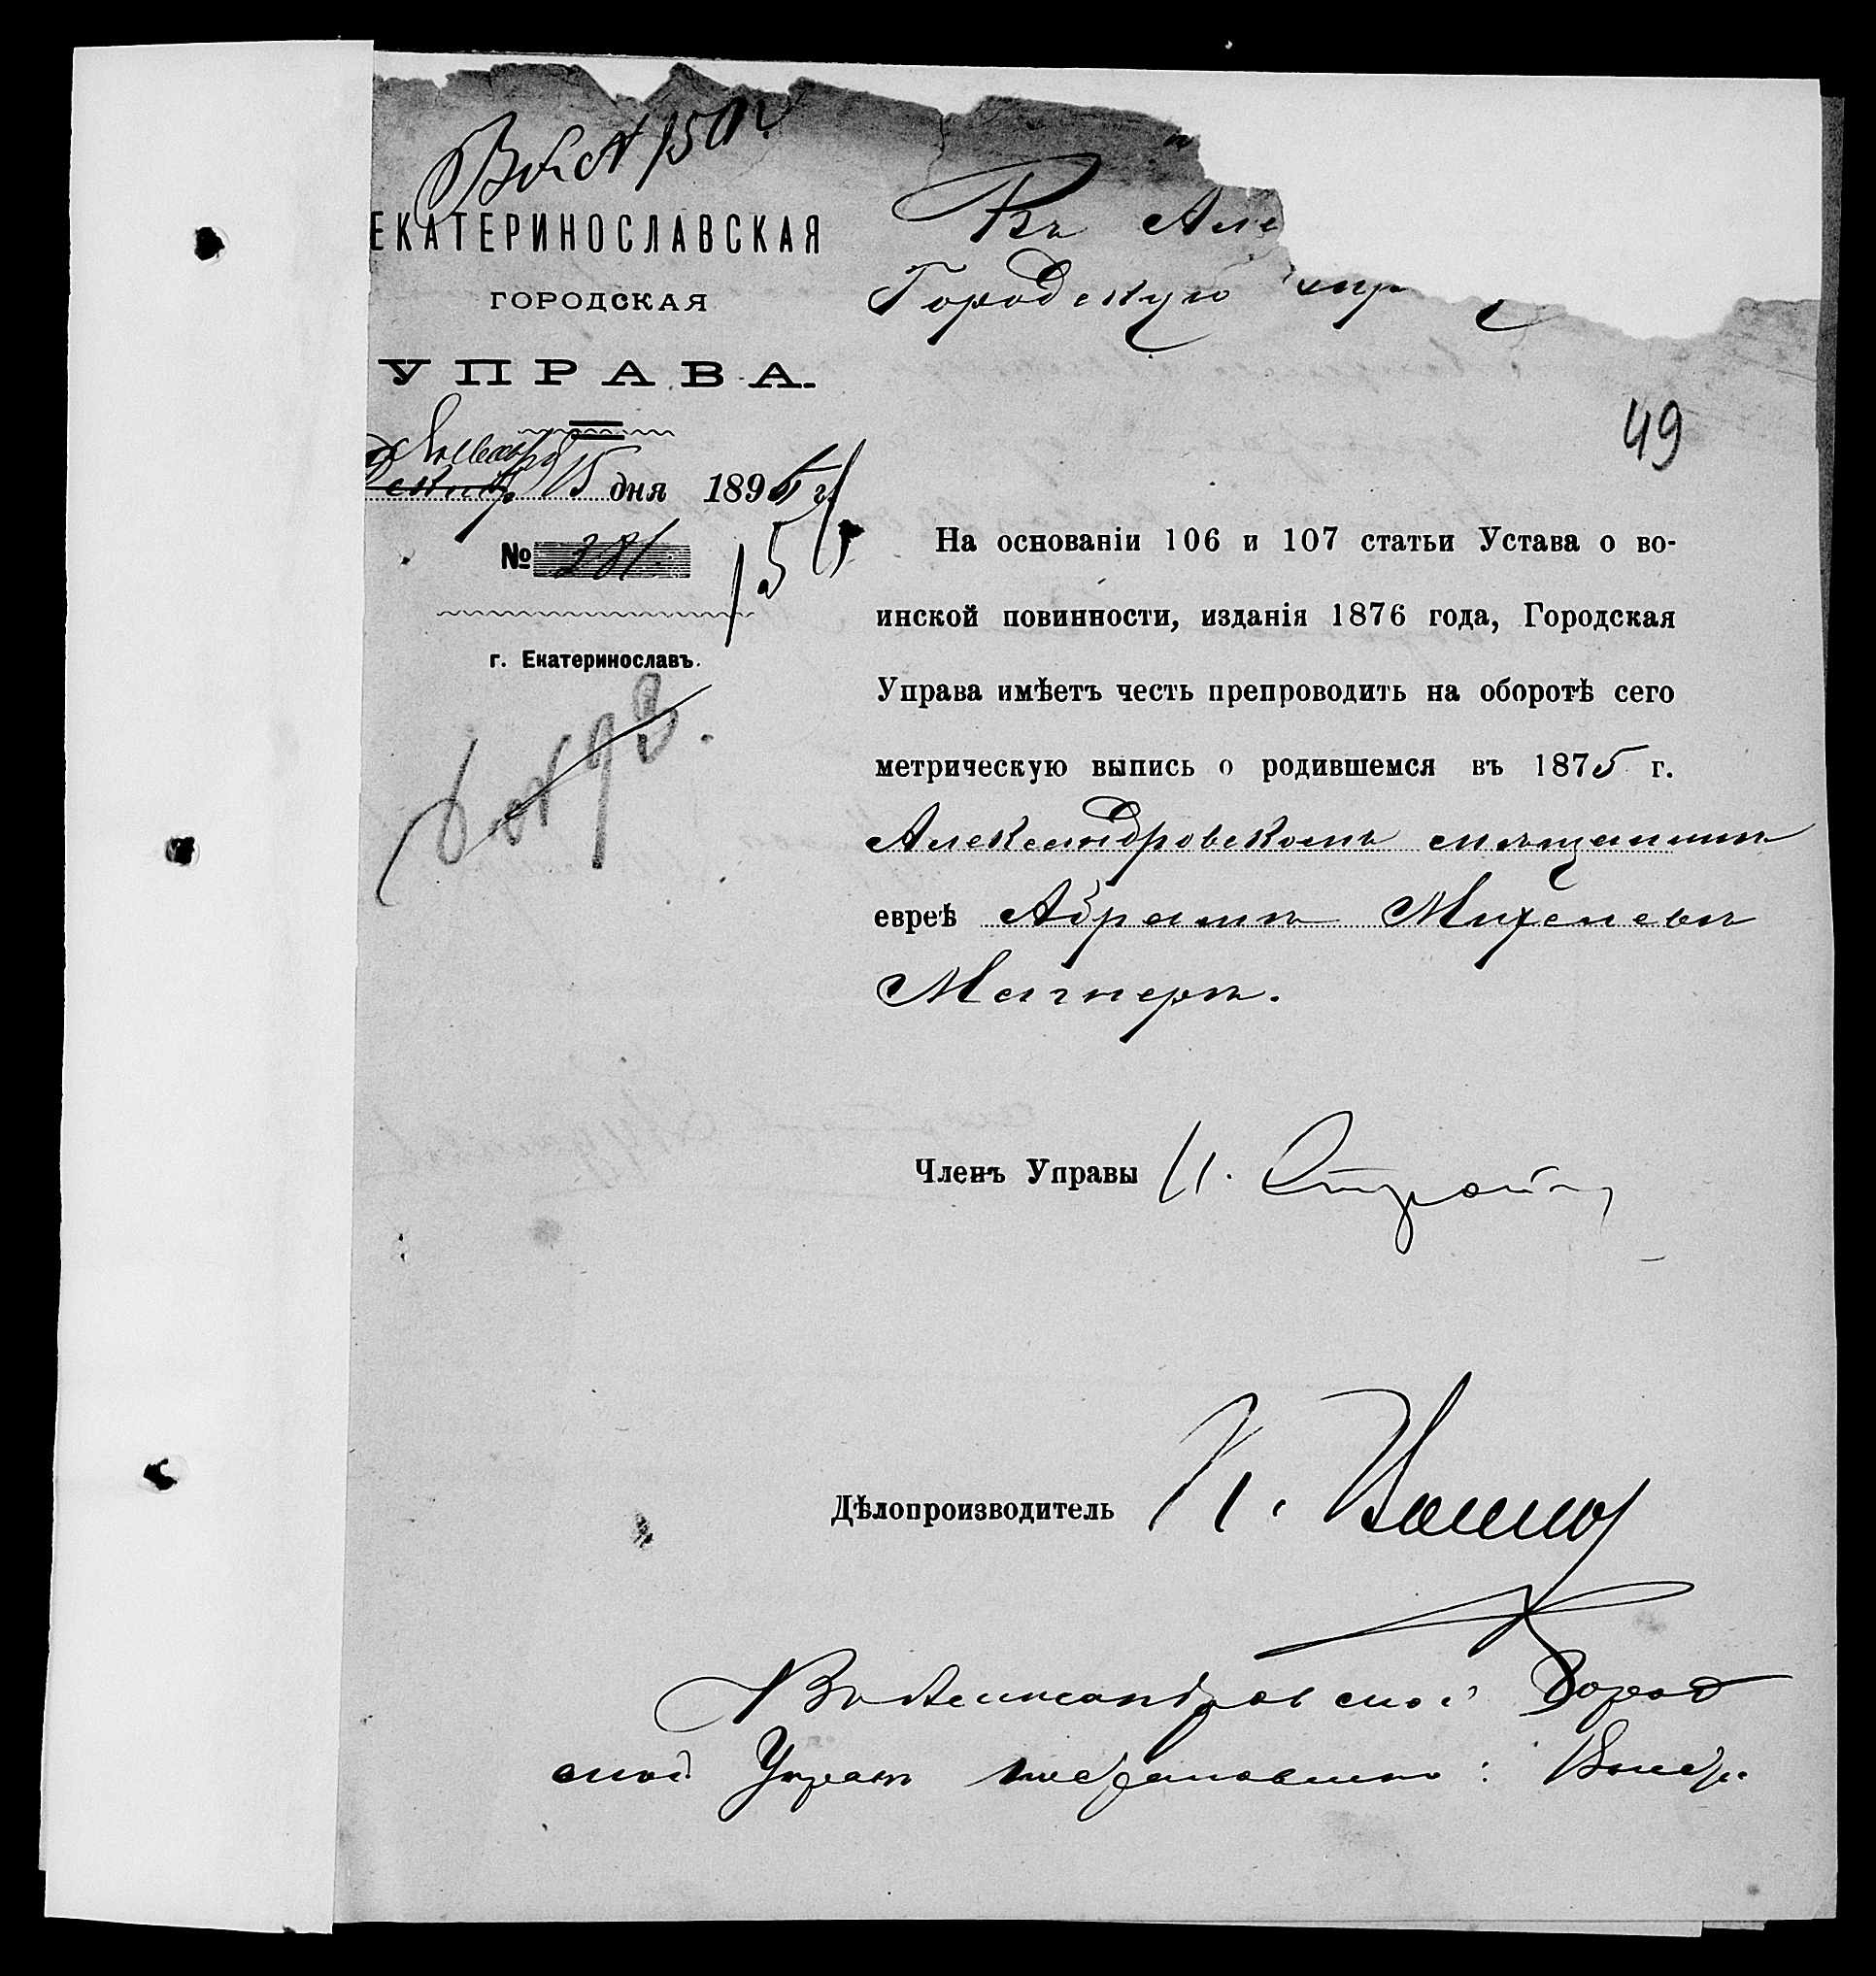 ЕКАТЕРИНОСЛАВСКАЯ
ГОРОДСКАЯ
УПРАВА.
Января 15 дня 189
№ 281.
г. Екатеринославъ.
Въ Але
Городскую упр
49
На основаніи 106 и 107 статьи Устава о во-
инской повинности, изданія 1876 года, Городская
Управа имѣетъ честь препроводить на оборотѣ сего
метрическую выпись о родившемся въ 1875 г.
Александровскомъ мѣщанинѣ
евреѣ Абрамѣ Михелевѣ
Магнерѣ.
Членъ Управы
Дѣлопроизводитель
Въ Александровской Город
ской Управѣ